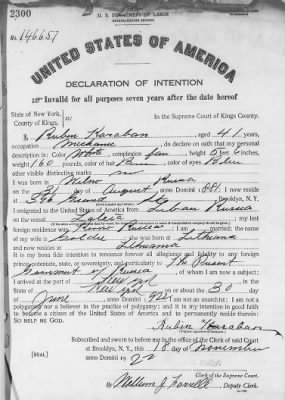 2300
U. S. DEPARTMENT OF LABOR
NATURALIZATION SERVICE
No. 146657
UNITED STATES OF AMERICA
DECLARATION OF INTENTION
Invalid for all purposes seven years after the date hereof
State of New York,
County of Kings,
In the Supreme Court of Kings County.
I, Rubin Haraban, aged 41 years,
occupation Mechanic, do declare on oath that my personal
description is: Color White, complexion fair, height 5 feet 6 inches,
weight 160 pounds, color of hair, color of eyes
other visible distinctive marks
I was born in Wilno Russia
on the 31 day of August, anno Domini 1881, I now reside
at 546 Grand St, Brooklyn, N. Y.
I emigrated to the United States of America from Libau Russia
on the vessel; my last
foreign residence was Russia; I am married; the name
of my wife is Goldie; she was born in Lithuania
and now resides Lithuania
It is my bona fide intention to renounce forever all allegiance and fidelity to any foreign
prince, potentate, state, or sovereignty, and particularly to The Present
Government of Russia, of whom I am now a subject;
I arrived at the port of New York
State of New York on or about the 30 day
of June, anno Domini; I am not an anarchist; I am not a
polygamist nor a believer in the practice of polygamy; and it is my intention in good faith
to become a citizen of the United States of America and to permanently reside therein:
SO HELP ME GOD.
Rubin Haraban
Subscribed and sworn to before me in the office of the Clerk of said Court
at Brooklyn, N. Y., this 18 day of
[SEAL] anno Domini 1922
Clerk of the Supreme Court.
By William J. Farrell, Deputy Clerk.